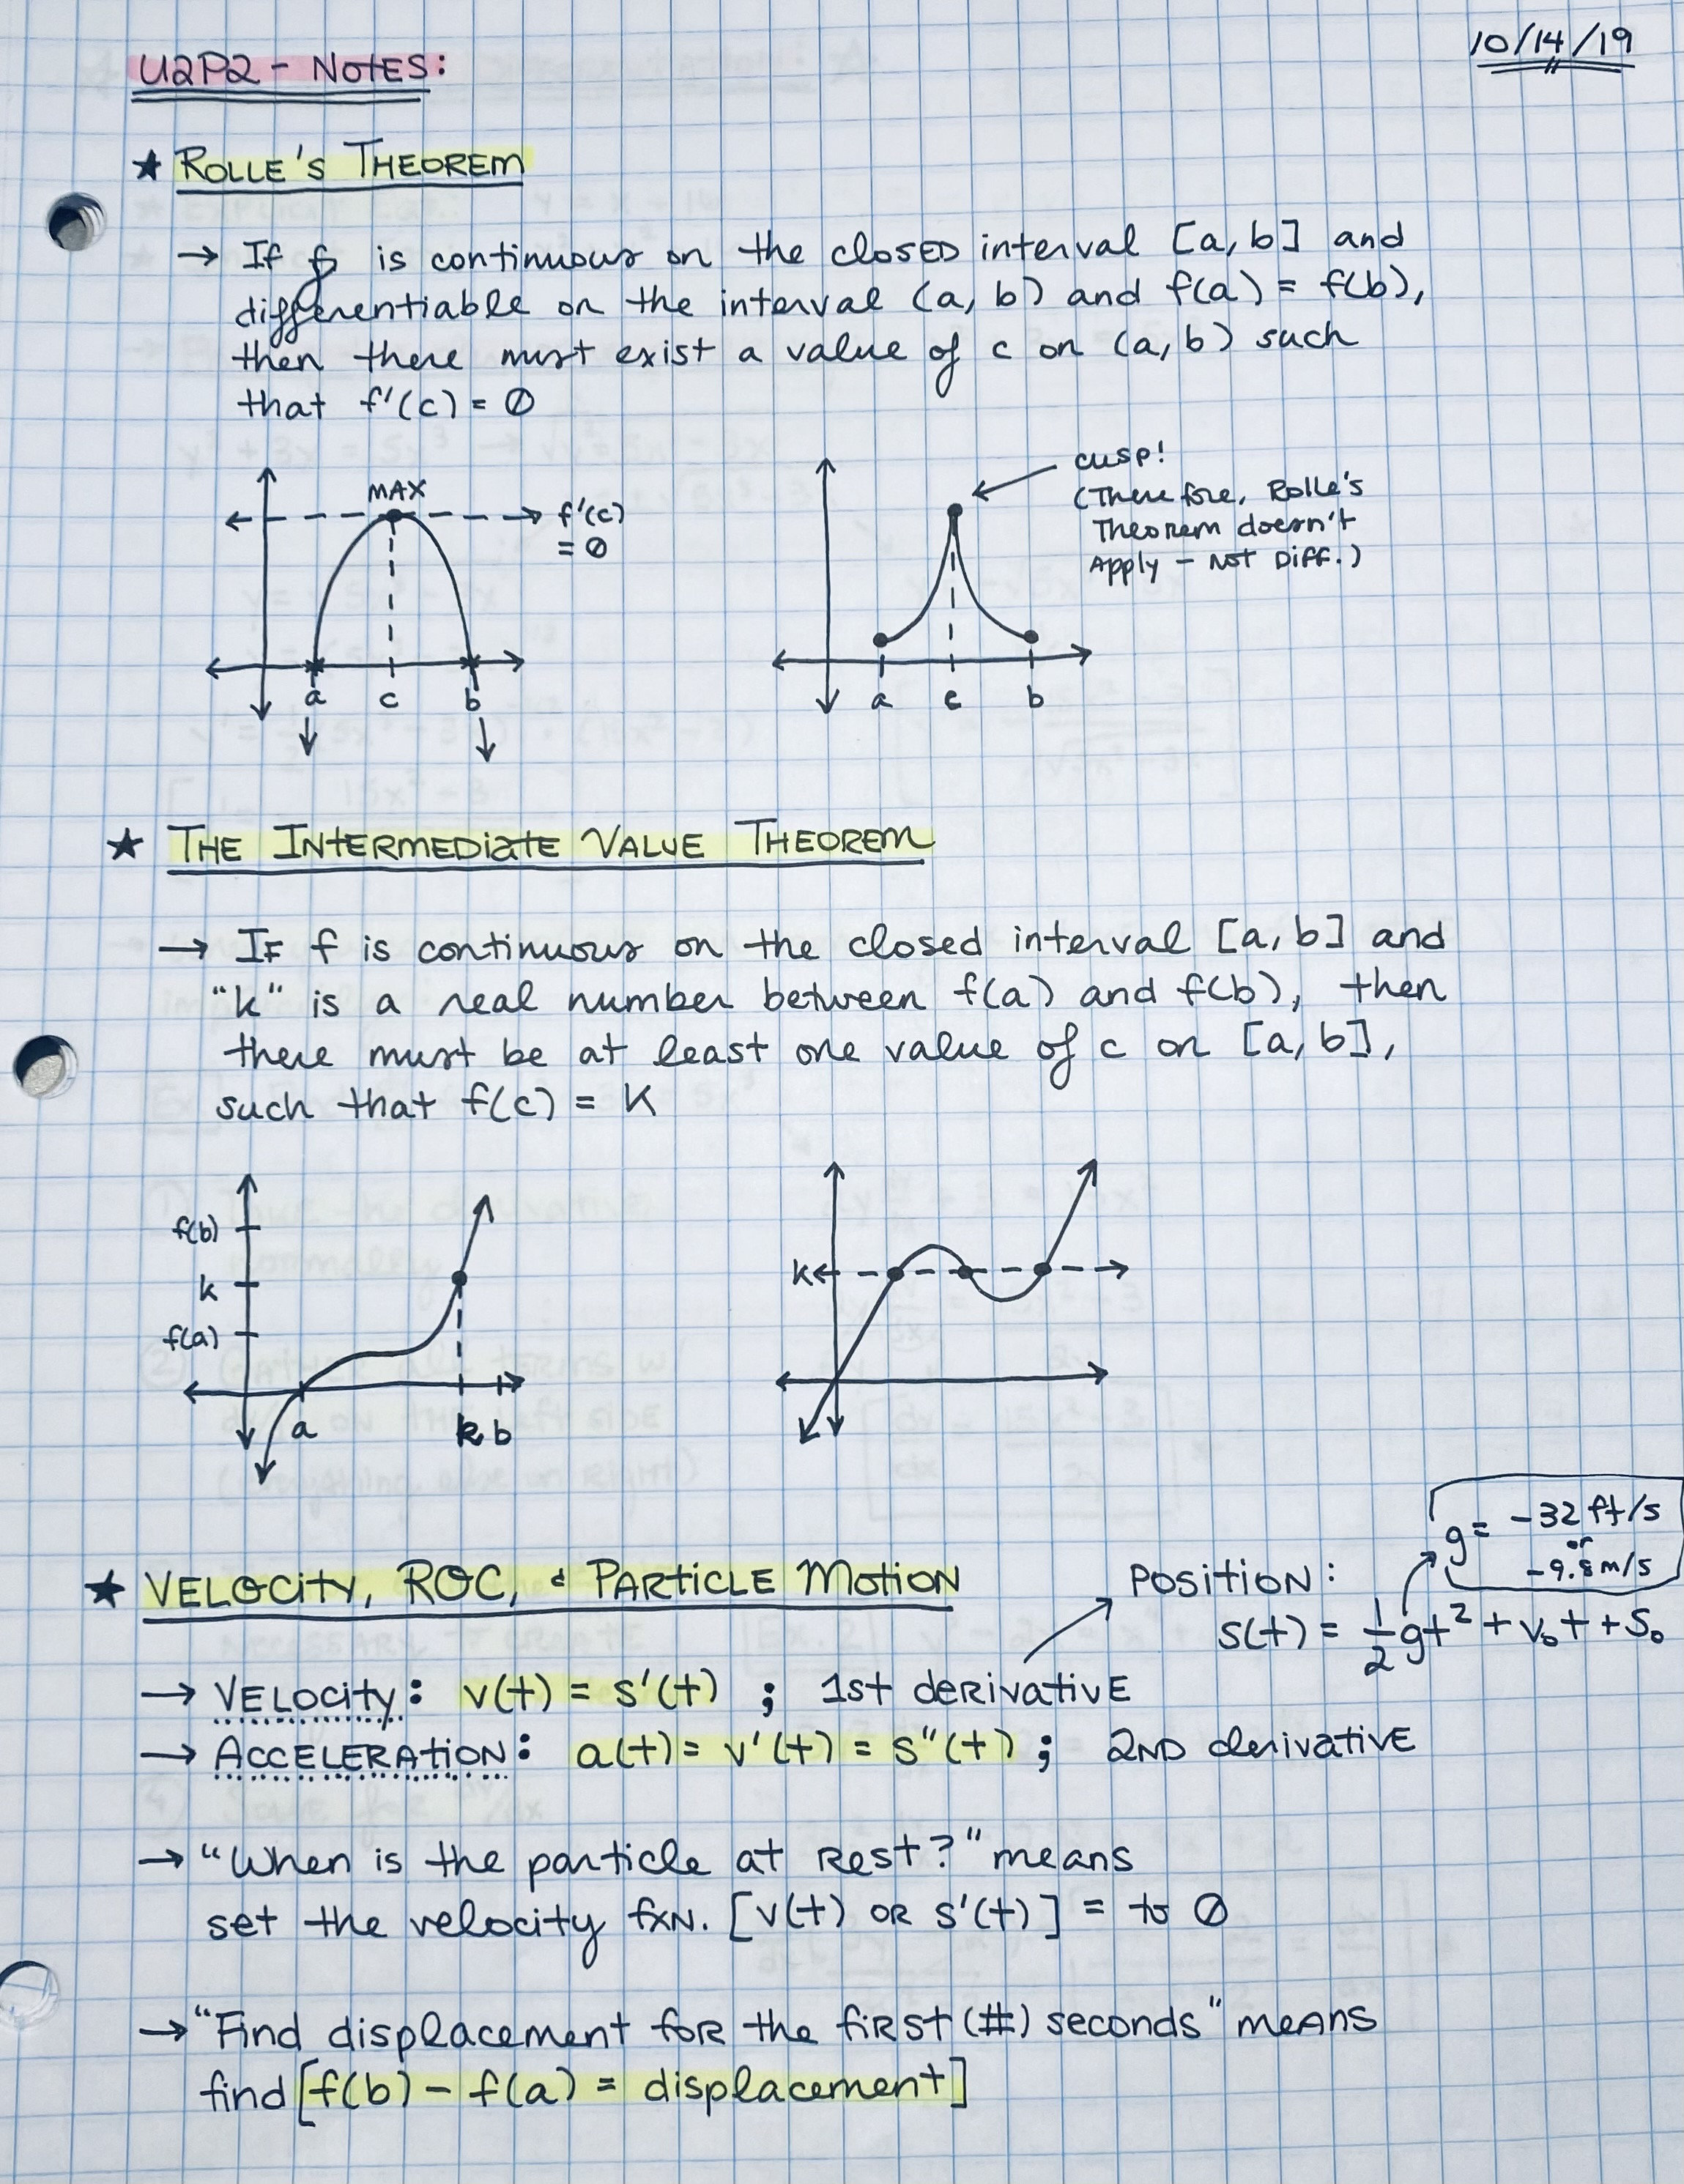 U2P2 - NOTES:
10/14/19
★ ROLLE'S THEOREM
→ If f is continuous on the closed interval [a, b] and
differentiable on the interval (a, b) and f(a) = f(b),
then there must exist a value of c on (a, b) such
that f'(c) = 0
MAX
f'(c)
= 0
a c b
cusp!
(Therefore, Rolle's
Theorem doesn't
Apply - NOT DIFF.)
a c b
★ THE INTERMEDIATE VALUE THEOREM
→ IF f is continuous on the closed interval [a, b] and
"k" is a real number between f(a) and f(b), then
there must be at least one value of c on [a, b],
such that f(c) = K
f(b)
k
f(a)
a k b
K
★ VELOCITY, ROC, & PARTICLE MOTION
POSITION:
g = -32 ft/s
or
-9.8 m/s
s(t) = 1/2 gt² + v₀t + S₀
→ VELOCITY: v(t) = s'(t) ; 1st derivative
→ ACCELERATION: a(t) = v'(t) = s"(t) ; 2ND derivative
→ "When is the particle at rest?" means
set the velocity fxn. [v(t) OR s'(t)] = to 0
→ "Find displacement for the first (#) seconds" means
find [f(b) - f(a) = displacement]